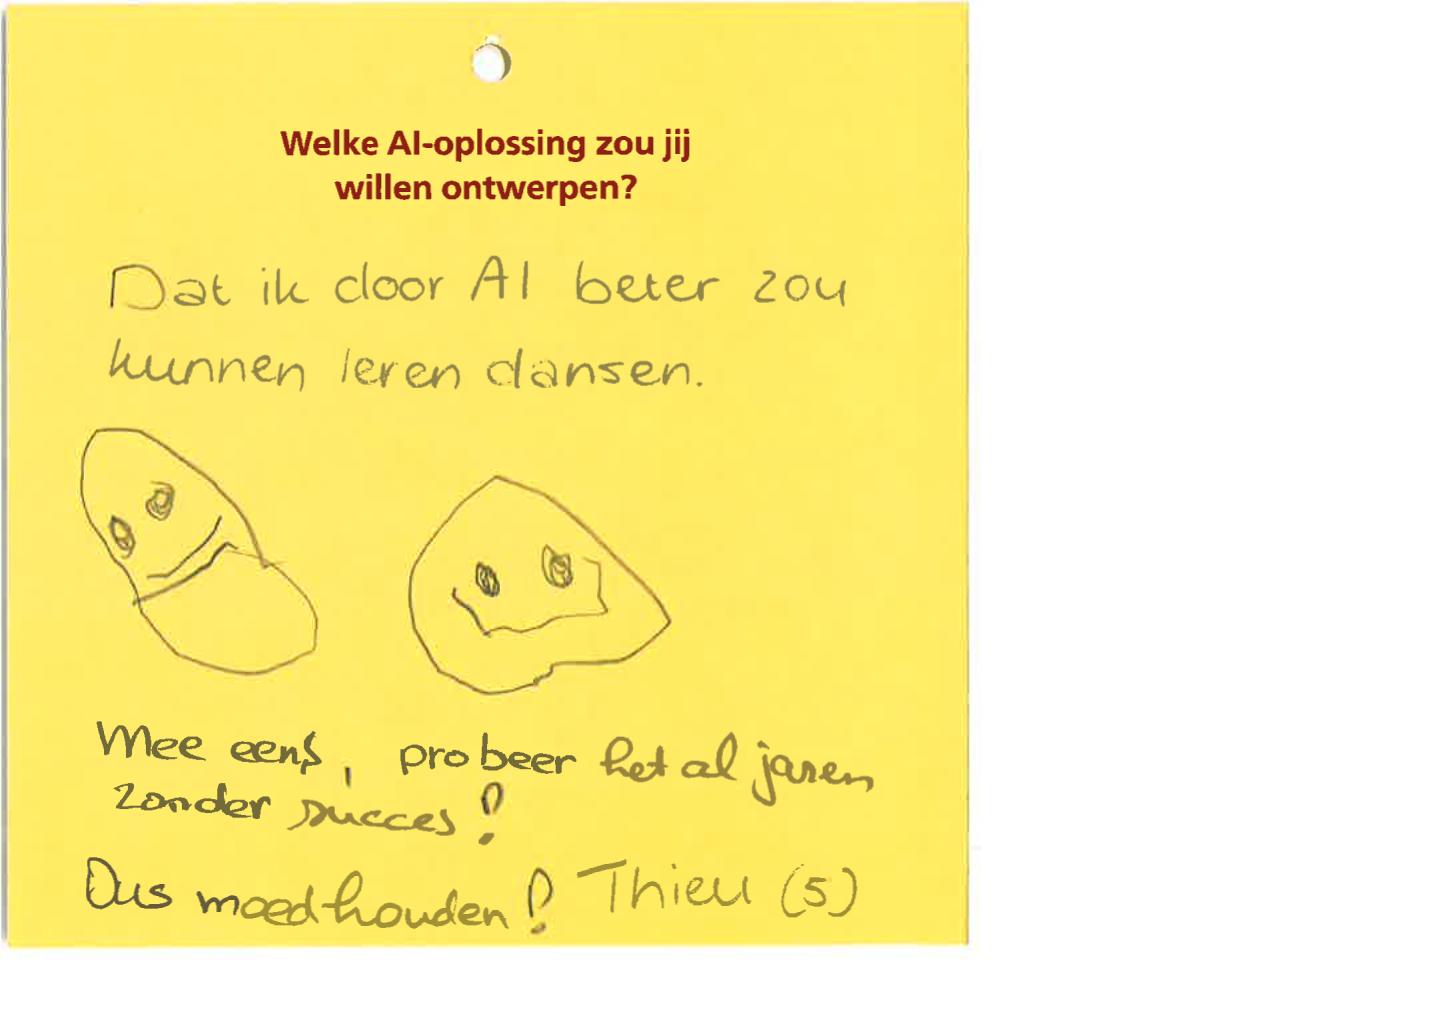 Welke AI-oplossing zou jij
willen ontwerpen?
Dat ik door AI beter zou
kunnen leren dansen.
Mee eens, probeer het al jaren
zonder succes!
Dus moedhouden! Thieu (5)